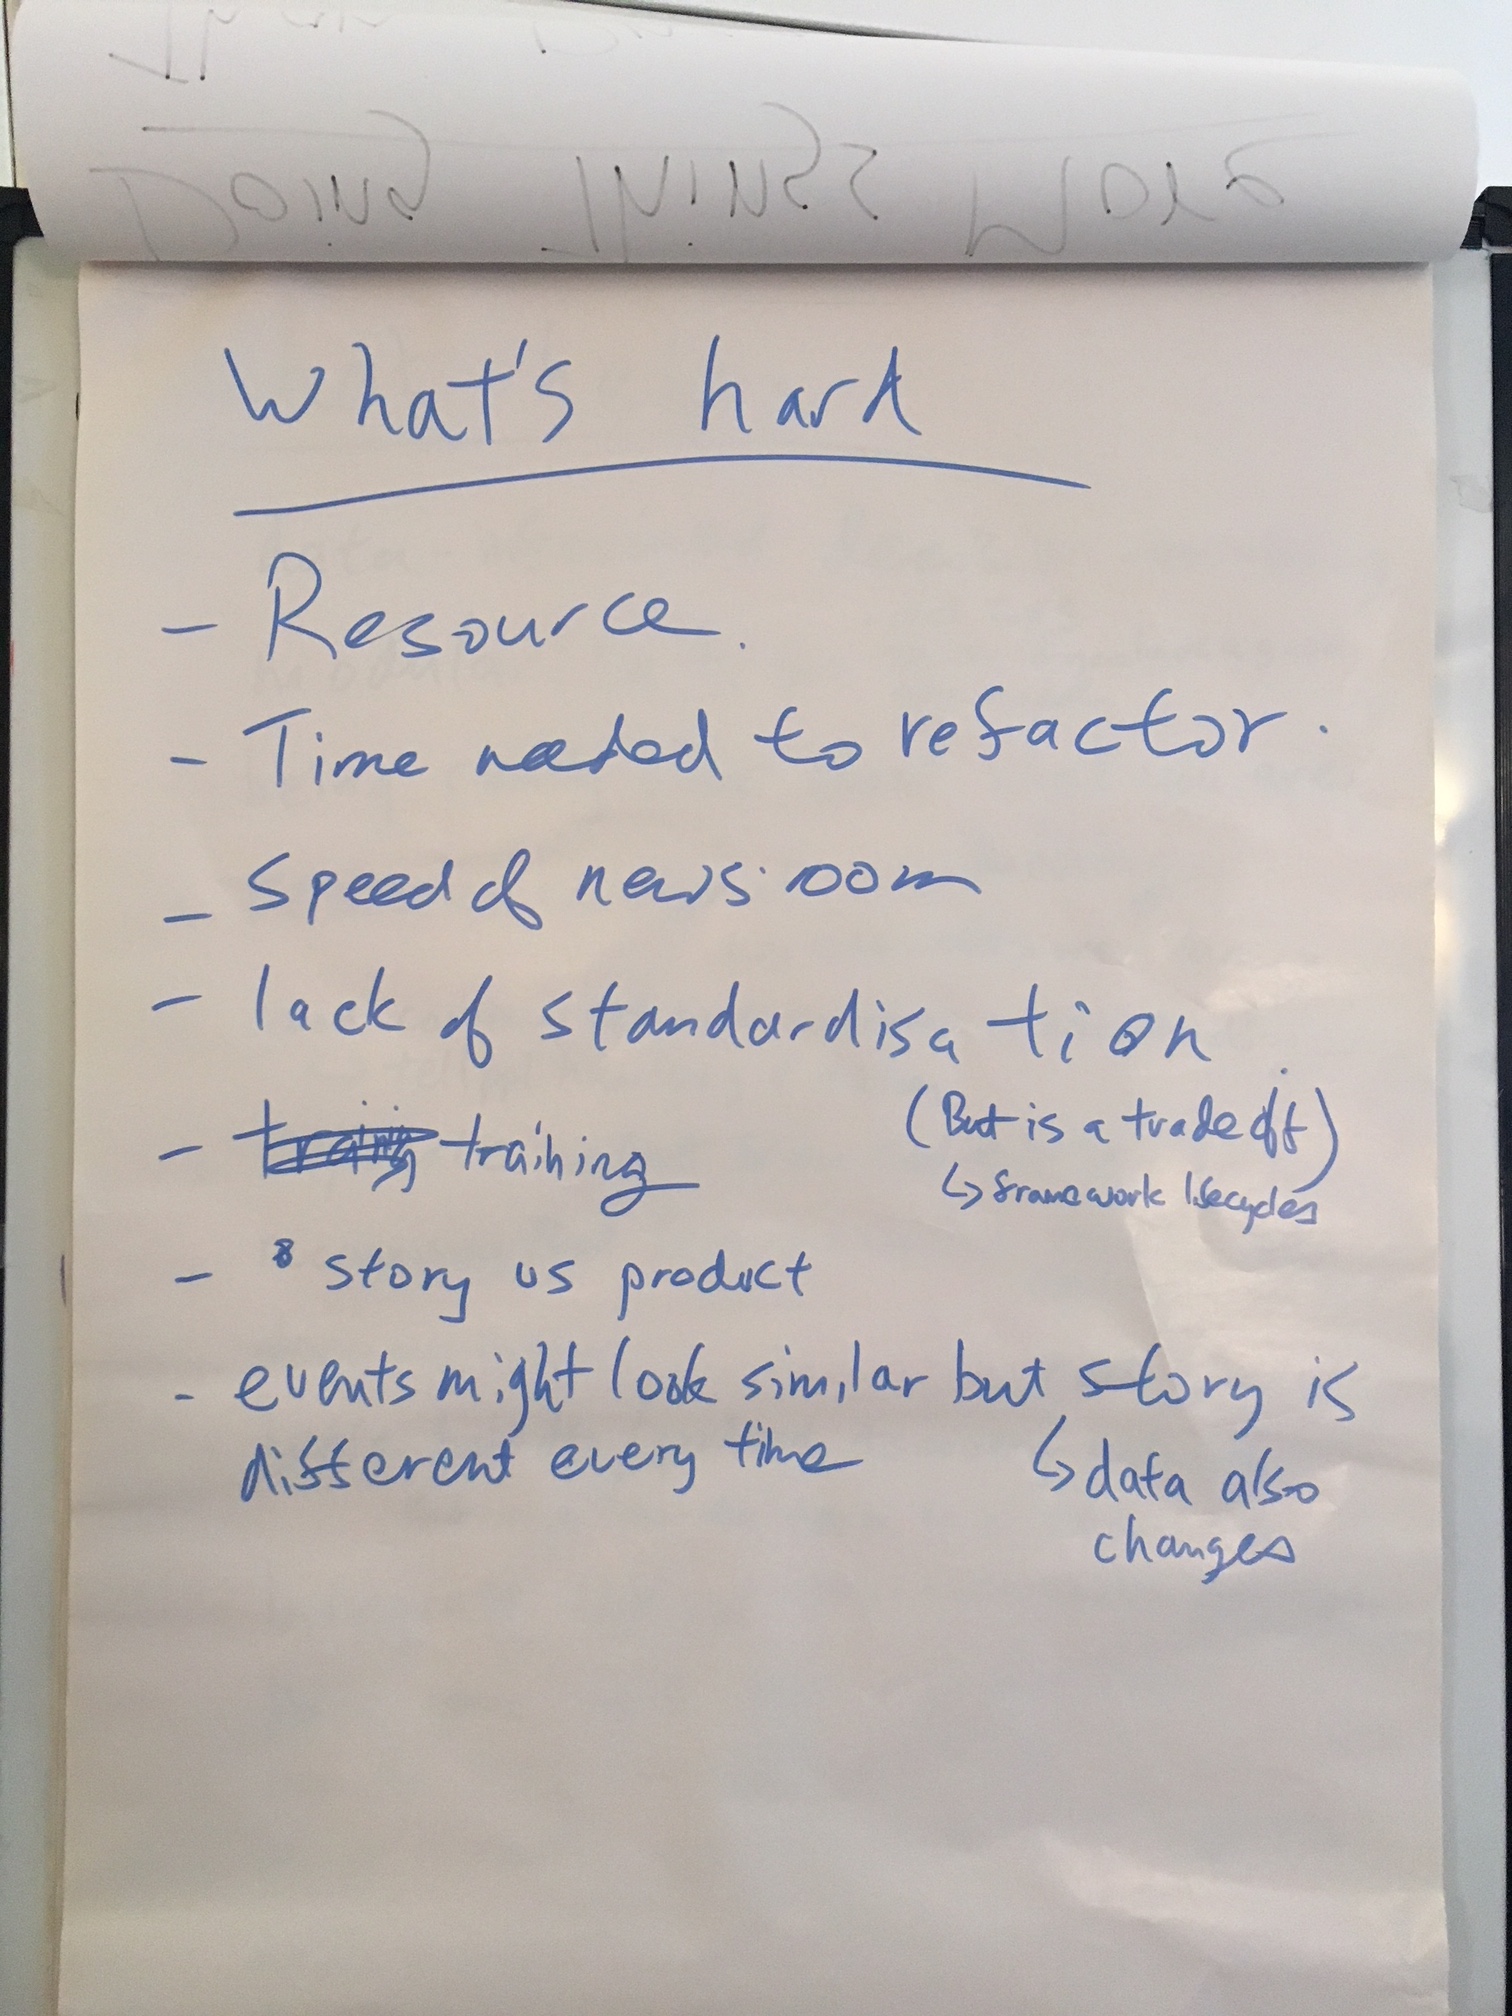 What's hard
- Resource.
- Time needed to refactor.
- Speed of newsroom
- lack of standardisation.
(But is a trade off)
↳ framework lifecycles
- training
- story vs product
- events might look similar but story is
different every time
↳ data also
changes